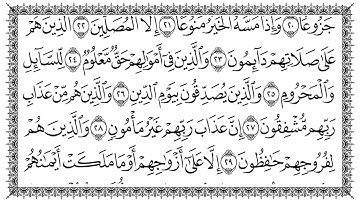 جَزُوعًا ٢٠ وَإِذَا مَسَّهُ ٱلْخَيْرُ مَنُوعًا ٢١ إِلَّا ٱلْمُصَلِّينَ ٢٢ ٱلَّذِينَ هُمْ
عَلَىٰ صَلَاتِهِمْ دَآئِمُونَ ٢٣ وَٱلَّذِينَ فِىٓ أَمْوَٰلِهِمْ حَقٌّ مَّعْلُومٌ ٢٤ لِّلسَّآئِلِ
وَٱلْمَحْرُومِ ٢٥ وَٱلَّذِينَ يُصَدِّقُونَ بِيَوْمِ ٱلدِّينِ ٢٦ وَٱلَّذِينَ هُم مِّنْ عَذَابِ
رَبِّهِم مُّشْفِقُونَ ٢٧ إِنَّ عَذَابَ رَبِّهِمْ غَيْرُ مَأْمُونٍ ٢٨ وَٱلَّذِينَ هُمْ
لِفُرُوجِهِمْ حَٰفِظُونَ ٢٩ إِلَّا عَلَىٰٓ أَزْوَٰجِهِمْ أَوْ مَا مَلَكَتْ أَيْمَٰنُهُمْ